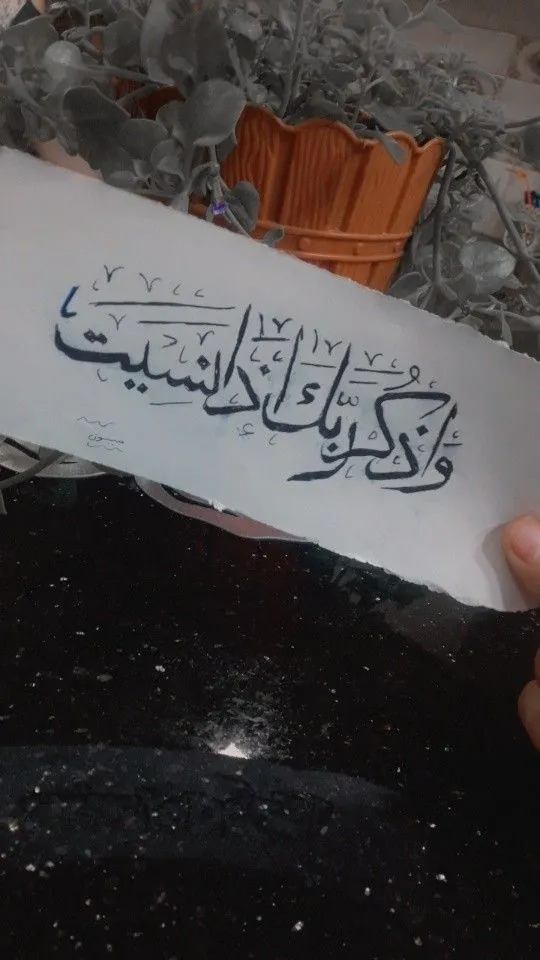 وَاذْكُر رَّبَّكَ إِذَا نَسِيتَ